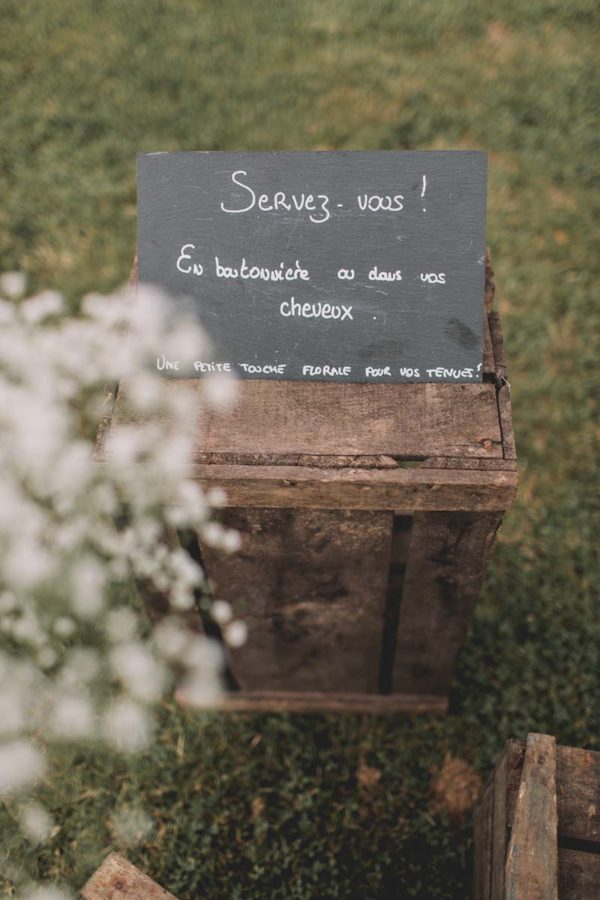 Servez-vous !
En boutonnière ou dans vos
cheveux.
UNE PETITE TOUCHE FLORALE POUR VOS TENUES!